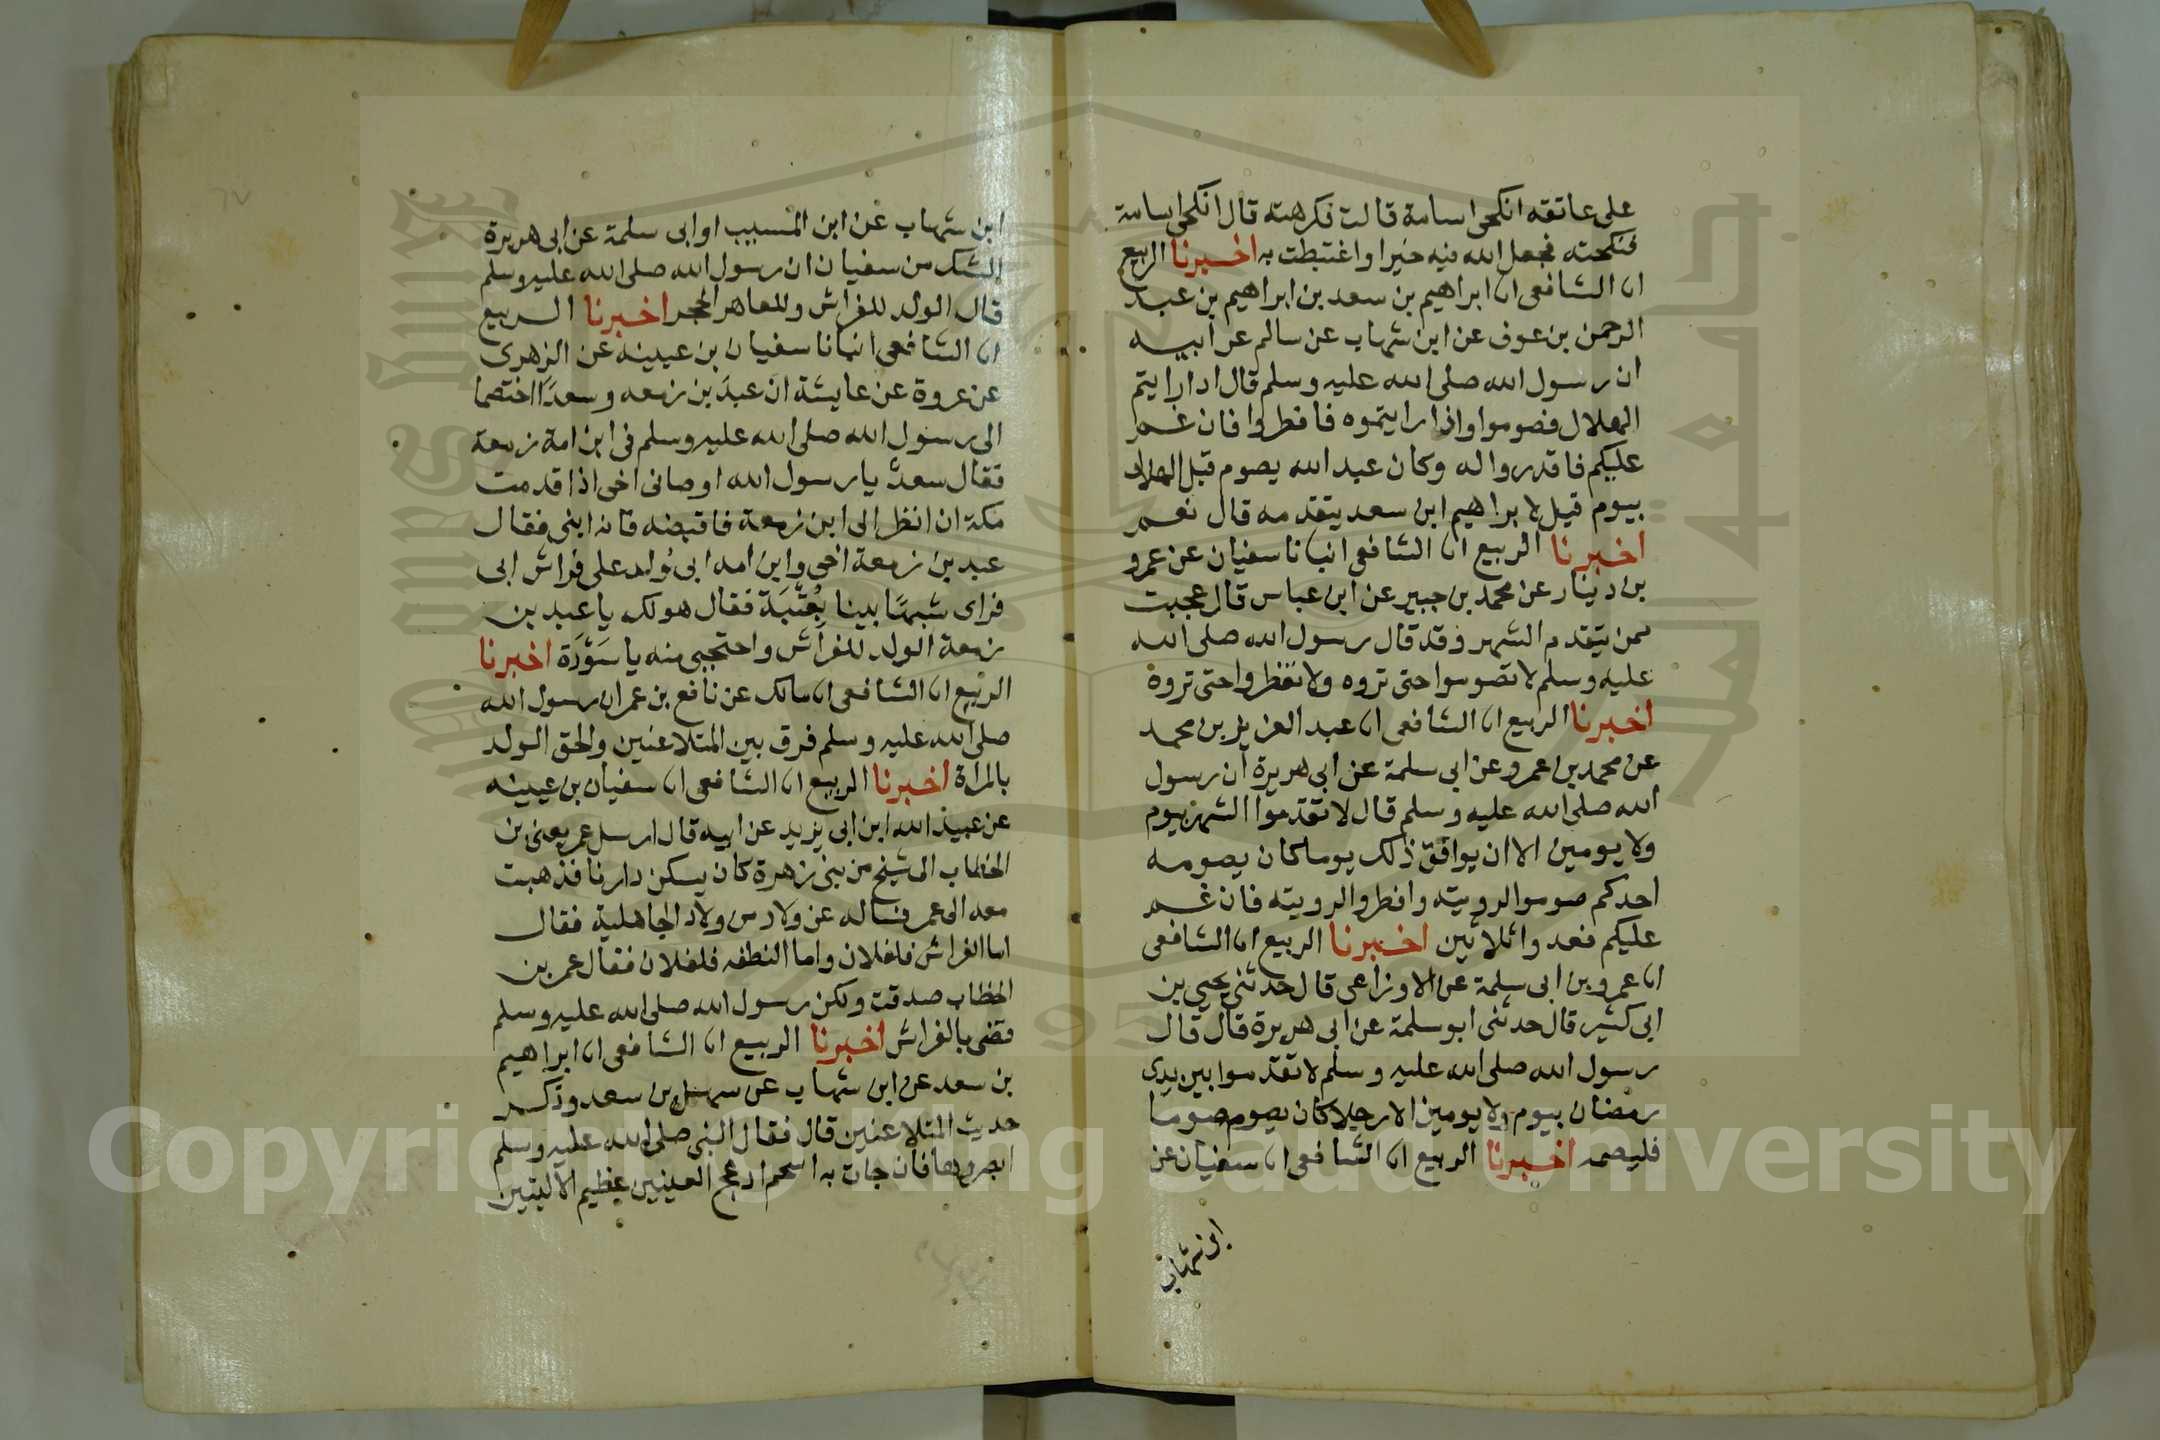 على عاتقه انكحى اسامة قالت فكرهته قال انكحى اسامة
فنكحته فجعل الله فيه خيرا واغتبطت به اخبرنا الربيع
انا الشافعى انا ابراهيم بن سعد بن ابراهيم بن عبد
الرحمن بن عوف عن ابن شهاب عن سالم عن ابيه
ان رسول الله صلى الله عليه وسلم قال اذا رايتم
الهلال فصوموا واذا رايتموه فافطروا فان غم
عليكم فاقدروا له وكان عبد الله يصوم قبل الهلال
بيوم قيل لابراهيم ابن سعد يتقدمه قال نعم
اخبرنا الربيع انا الشافعى انبانا سفيان عن عمرو
بن دينار عن محمد بن جبير عن ابن عباس قال عجبت
ممن يتقدم الشهر وقد قال رسول الله صلى الله
عليه وسلم لا تصوموا حتى تروه ولا تفطروا حتى تروه
اخبرنا الربيع انا الشافعى انا عبد العزيز بن محمد
عن محمد بن عمرو عن ابى سلمة عن ابى هريرة ان رسول
الله صلى الله عليه وسلم قال لا تقدموا الشهر بيوم
ولا يومين الا ان يوافق ذلك يوما كان يصومه
احدكم صوموا لرويته وافطروا لرويته فان غم
عليكم فعدوا ثلاثين اخبرنا الربيع انا الشافعى
انا عمرو بن ابى سلمة عن الاوزاعى قال حدثنى يحيى بن
ابى كثير قال حدثنى ابو سلمة عن ابى هريرة قال قال
رسول الله صلى الله عليه وسلم لا تقدموا بين يدى
رمضان بيوم ولا يومين الا رجلا كان يصوم صوما
فليصمه اخبرنا الربيع انا الشافعى انا سفيان عن
ابن شهاب
ابن شهاب عن ابن المسيب او ابى سلمة عن ابى هريرة
الشك من سفيان ان رسول الله صلى الله عليه وسلم
قال الولد للفراش وللعاهر الحجر اخبرنا الربيع
انا الشافعى انبانا سفيان بن عيينه عن الزهرى
عن عروة عن عايشة ان عبد بن زمعه وسعدا اختصما
الى رسول الله صلى الله عليه وسلم فى ابن امة زمعة
فقال سعد يا رسول الله اوصانى اخى اذا قدمت
مكة ان انظر الى ابن زمعة فاقبضه فانه ابنى فقال
عبد بن زمعة اخى وابن امه ابى ولد على فراش ابى
فراى شبها بينا بعتبة فقال هو لك يا عبد بن
زمعة الولد للفراش واحتجبى منه يا سودة اخبرنا
الربيع انا الشافعى انا مالك عن نافع بن عمر ان رسول الله
صلى الله عليه وسلم فرق بين المتلاعنين والحق الولد
بالمراة اخبرنا الربيع انا الشافعى انا سفيان بن عيينه
عن عبيد الله ابن ابى يزيد عن ابيه قال ارسل عمر يعنى بن
الخطاب الى شيخ من بنى زهرة كان يسكن دارنا فذهبت
معه الى عمر فساله عن ولاد من ولاد الجاهلية فقال
اما الفراش فلفلان واما النطفه فلفلان فقال عمر بن
الخطاب صدقت ولكن رسول الله صلى الله عليه وسلم
قضى بالفراش اخبرنا الربيع انا الشافعى انا ابراهيم
بن سعد عن ابن شهاب عن سهل بن سعد وذكر
حديث المتلاعنين قال فقال النبى صلى الله عليه وسلم
ابصروها فان جات به اسحم ادعج العينين عظيم الاليتين
Copyright © King Saud University